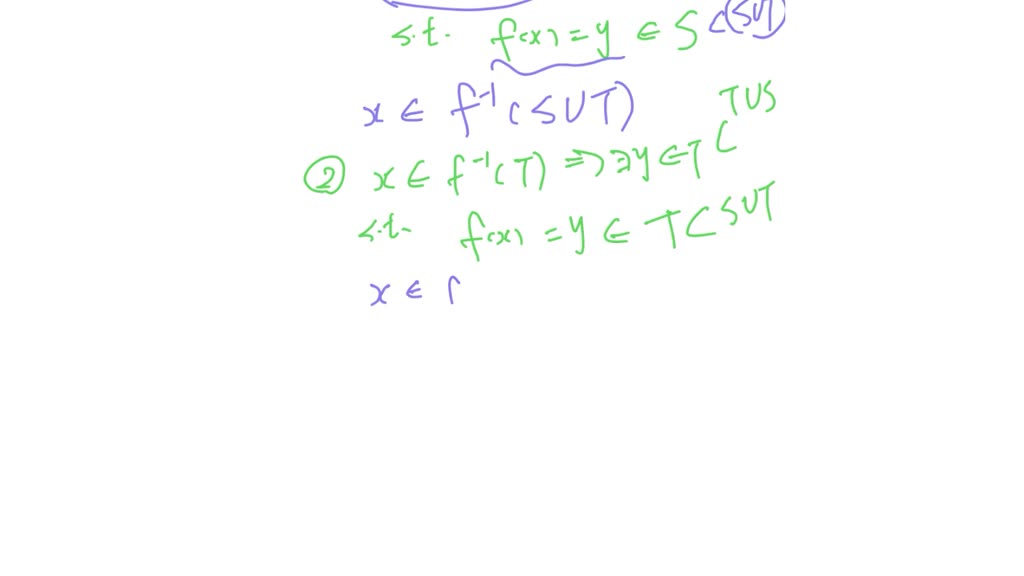 s.t. f(x) = y ∈ S ⊂ (S∪T)
x ∈ f⁻¹(S∪T)
② x ∈ f⁻¹(T) ⇒ ∃y ∈ T ⊂ T∪S
s.t. f(x) = y ∈ T ⊂ S∪T
x ∈ f